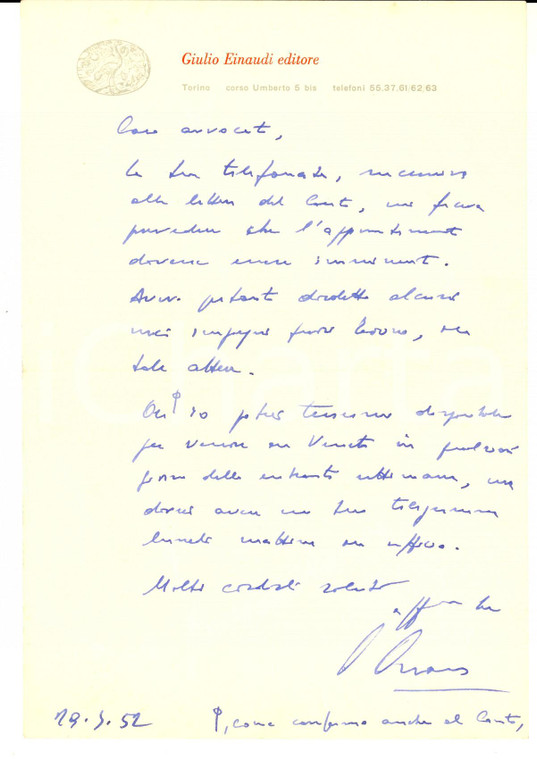 Giulio Einaudi editore
Torino corso Umberto 5 bis telefoni 55,37,61/62,63
Caro avvocato,
la Sua telefonata, successiva
alla lettera del Conte, mi faceva
prevedere che l'appuntamento
dovesse essere imminente.
Avevo pertanto disdetto alcuni
miei impegni fuori Torino, in
tale attesa.
Ora φ io potrei tenermi disponibile
per venire nel Veneto in qualsiasi
giorno della entrante settimana, ma
dovrei avere un Suo telegramma
lunedì mattina in ufficio.
Molti cordiali saluti
aff
29.3.52 φ, come confermo anche al Conte,